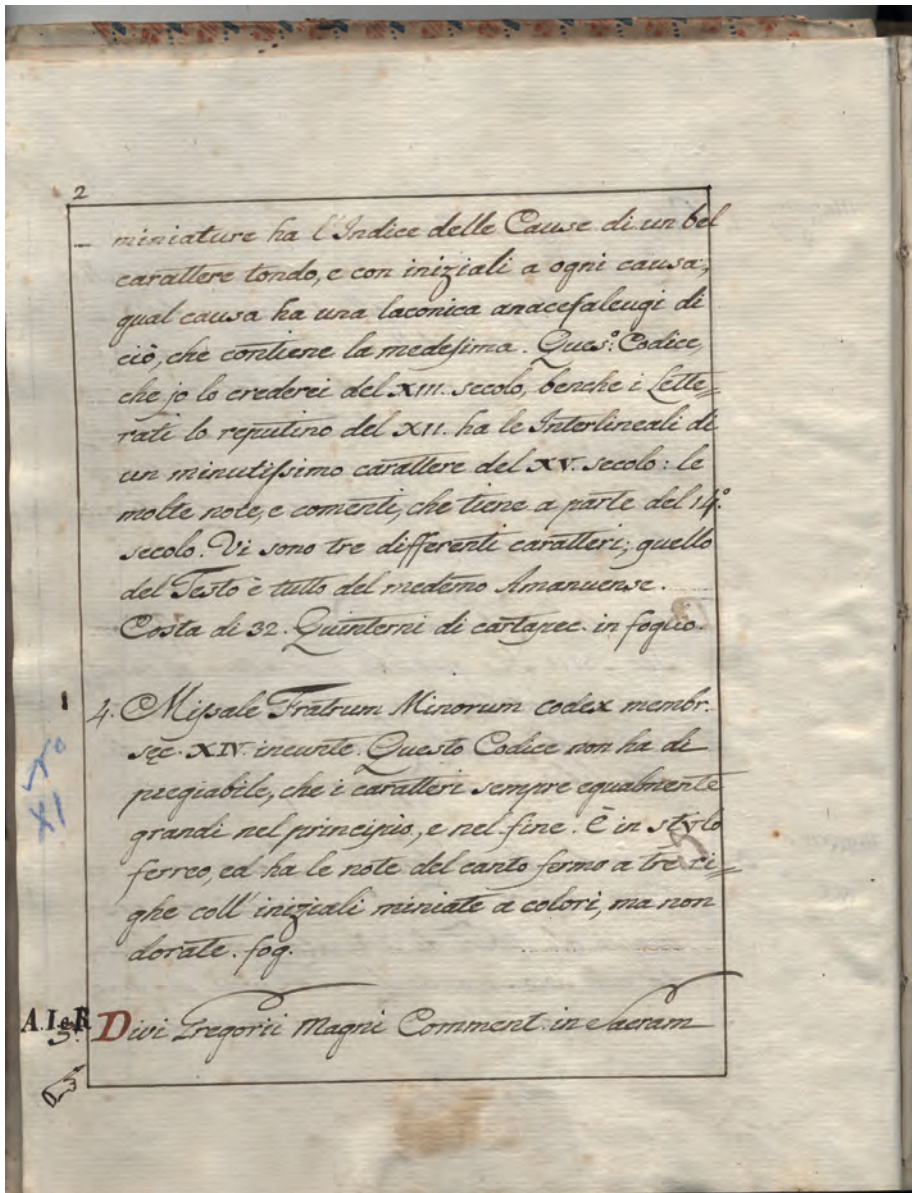 2
miniature ha l'Indice delle Cause di un bel
carattere tondo, e con iniziali a ogni causa,
qual causa ha una laconica anacefaleugi di
ciò, che contiene la medesima. Ques.º Codice,
che jo lo crederei del XIII. secolo, benche i Lette=
rati lo reputino del XII. ha le Interlineali di
un minutissimo carattere del XV. secolo: le
molte note, e comenti, che tiene a parte del 14º
secolo. Vi sono tre differenti caratteri; quello
del Testo è tutto del medemo Amanuense.
Costa di 32. Quinterni di cartapec. in foglio.
1 4. Missale Fratrum Minorum codex membr.
sęc. XIV. ineunte. Questo Codice non ha di
pregiabile, che i caratteri sempre egualmente
grandi nel principio, e nel fine. È in stylo
ferreo, ed ha le note del canto fermo a tre ri=
ghe coll' iniziali miniate a colori, ma non
dorate. fog.
A.I.R 5. Divi Gregorii Magni Comment. in Sacram